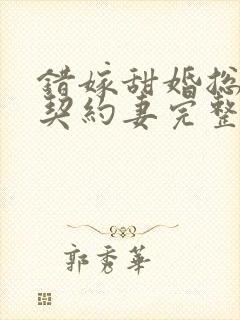 错嫁甜婚总
契約妻完整
郭秀華